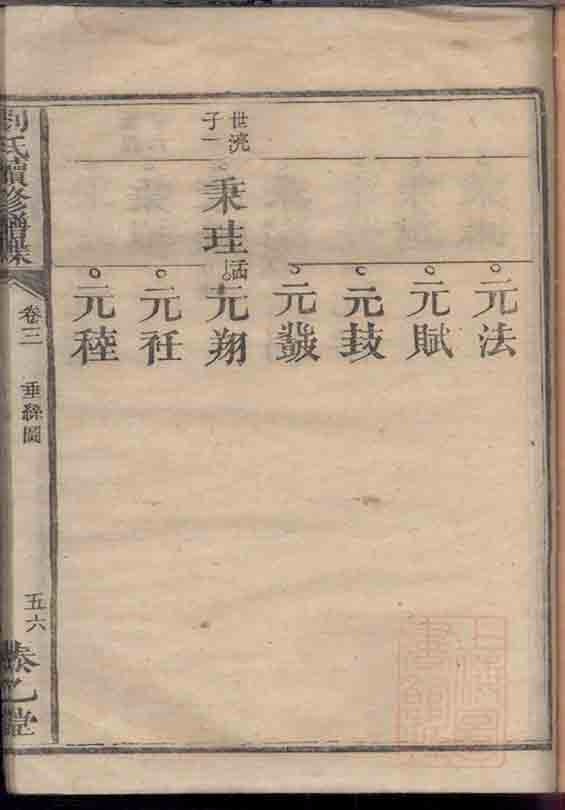 元法
元賦
元𡔷
元發
世涜子一
秉珪
元翔
元任
元稑
劉氏續修譜牒
卷三
垂絲圖
五六
藜乙堂